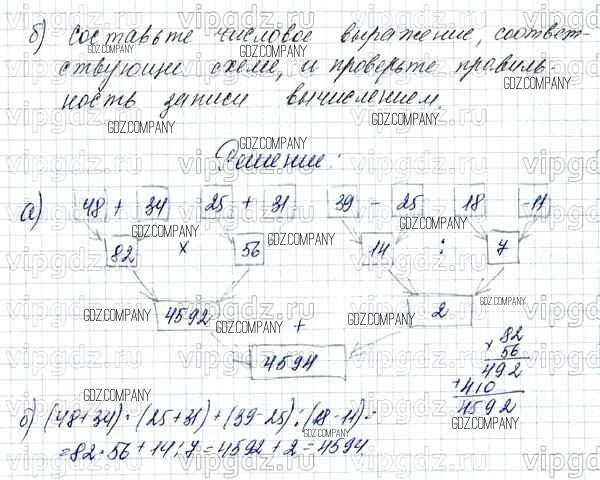 б) Составьте числовое выражение, соответ-
ствующие схеме, и проверьте правиль-
ность записи вычислением.
Решение:
а) 48 + 34 25 + 31 39 - 25 18 - 11
82 × 56 14 : 7
4592 + 2
4594
× 82
56
492
+ 410
4592
б) (48+34)·(25+31)+(39-25):(18-11)=
=82·56+14:7=4592+2=4594.
vipgdz.ru
GDZ.COMPANY